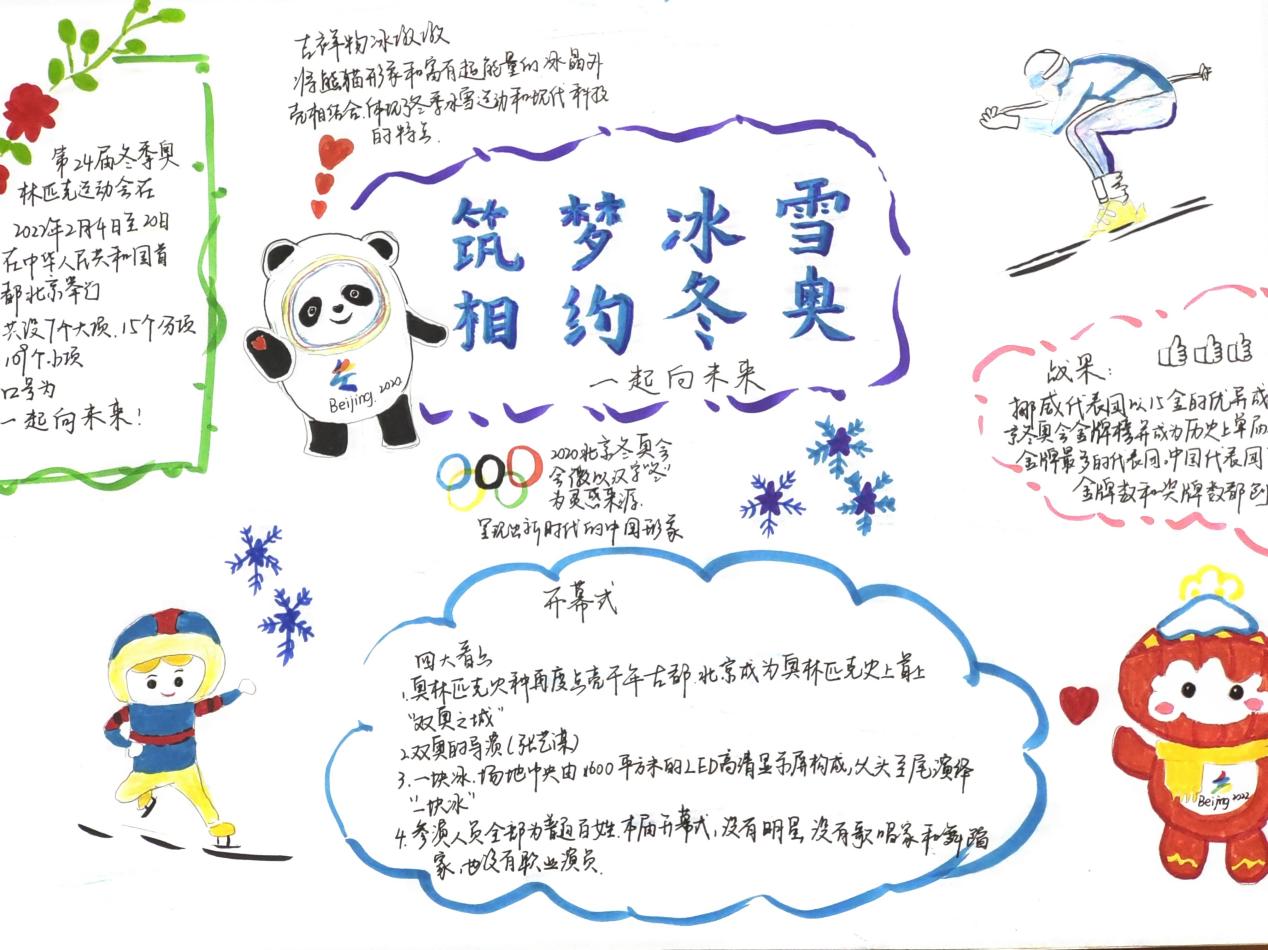 吉祥物冰墩墩
将熊猫形象和富有超能量的冰晶外
壳相结合.体现了冬季冰雪运动和现代科技
的特点.
第24届冬季奥
林匹克运动会在
2022年2月4日至20日
在中华人民共和国首
都北京举行
共设7个大项.15个分项
109个小项
口号为
一起向未来!
筑梦冰雪
相约冬奥
一起向未来
Beijing.2020
2020北京冬奥会
会徽以汉字"冬"
为灵感来源.
呈现出新时代的中国形象
战果:
挪威代表团以15金的优异成
京冬奥会金牌榜并成为历史上单届
金牌最多的代表团.中国代表团
金牌数和奖牌数都创
开幕式
四大看点
1.奥林匹克火种再度点亮千年古都.北京成为奥林匹克史上首个
"双奥之城"
2.双奥的导演(张艺谋)
3.一块冰.场地中央由1600平方米的LED高清显示屏构成,从头至尾演绎
"一块冰"
4.参演人员全部为普通百姓.本届开幕式,没有明星没有歌唱家和舞蹈
家,也没有职业演员.
Beijing 2022